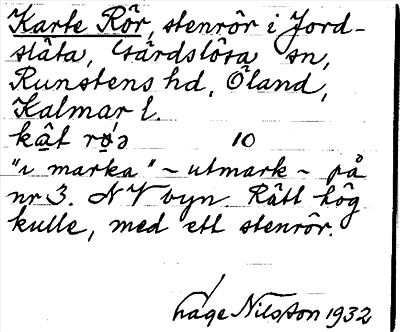 Karte Rör, stenrör i Jord-
släta, Gärdslösa sn,
Runstens hd, Öland,
Kalmar l.
10
"i marka" - utmark - på
nr 3. NV byn. Rätt hög
kulle, med ett stenrör.
Åge Nilsson 1932